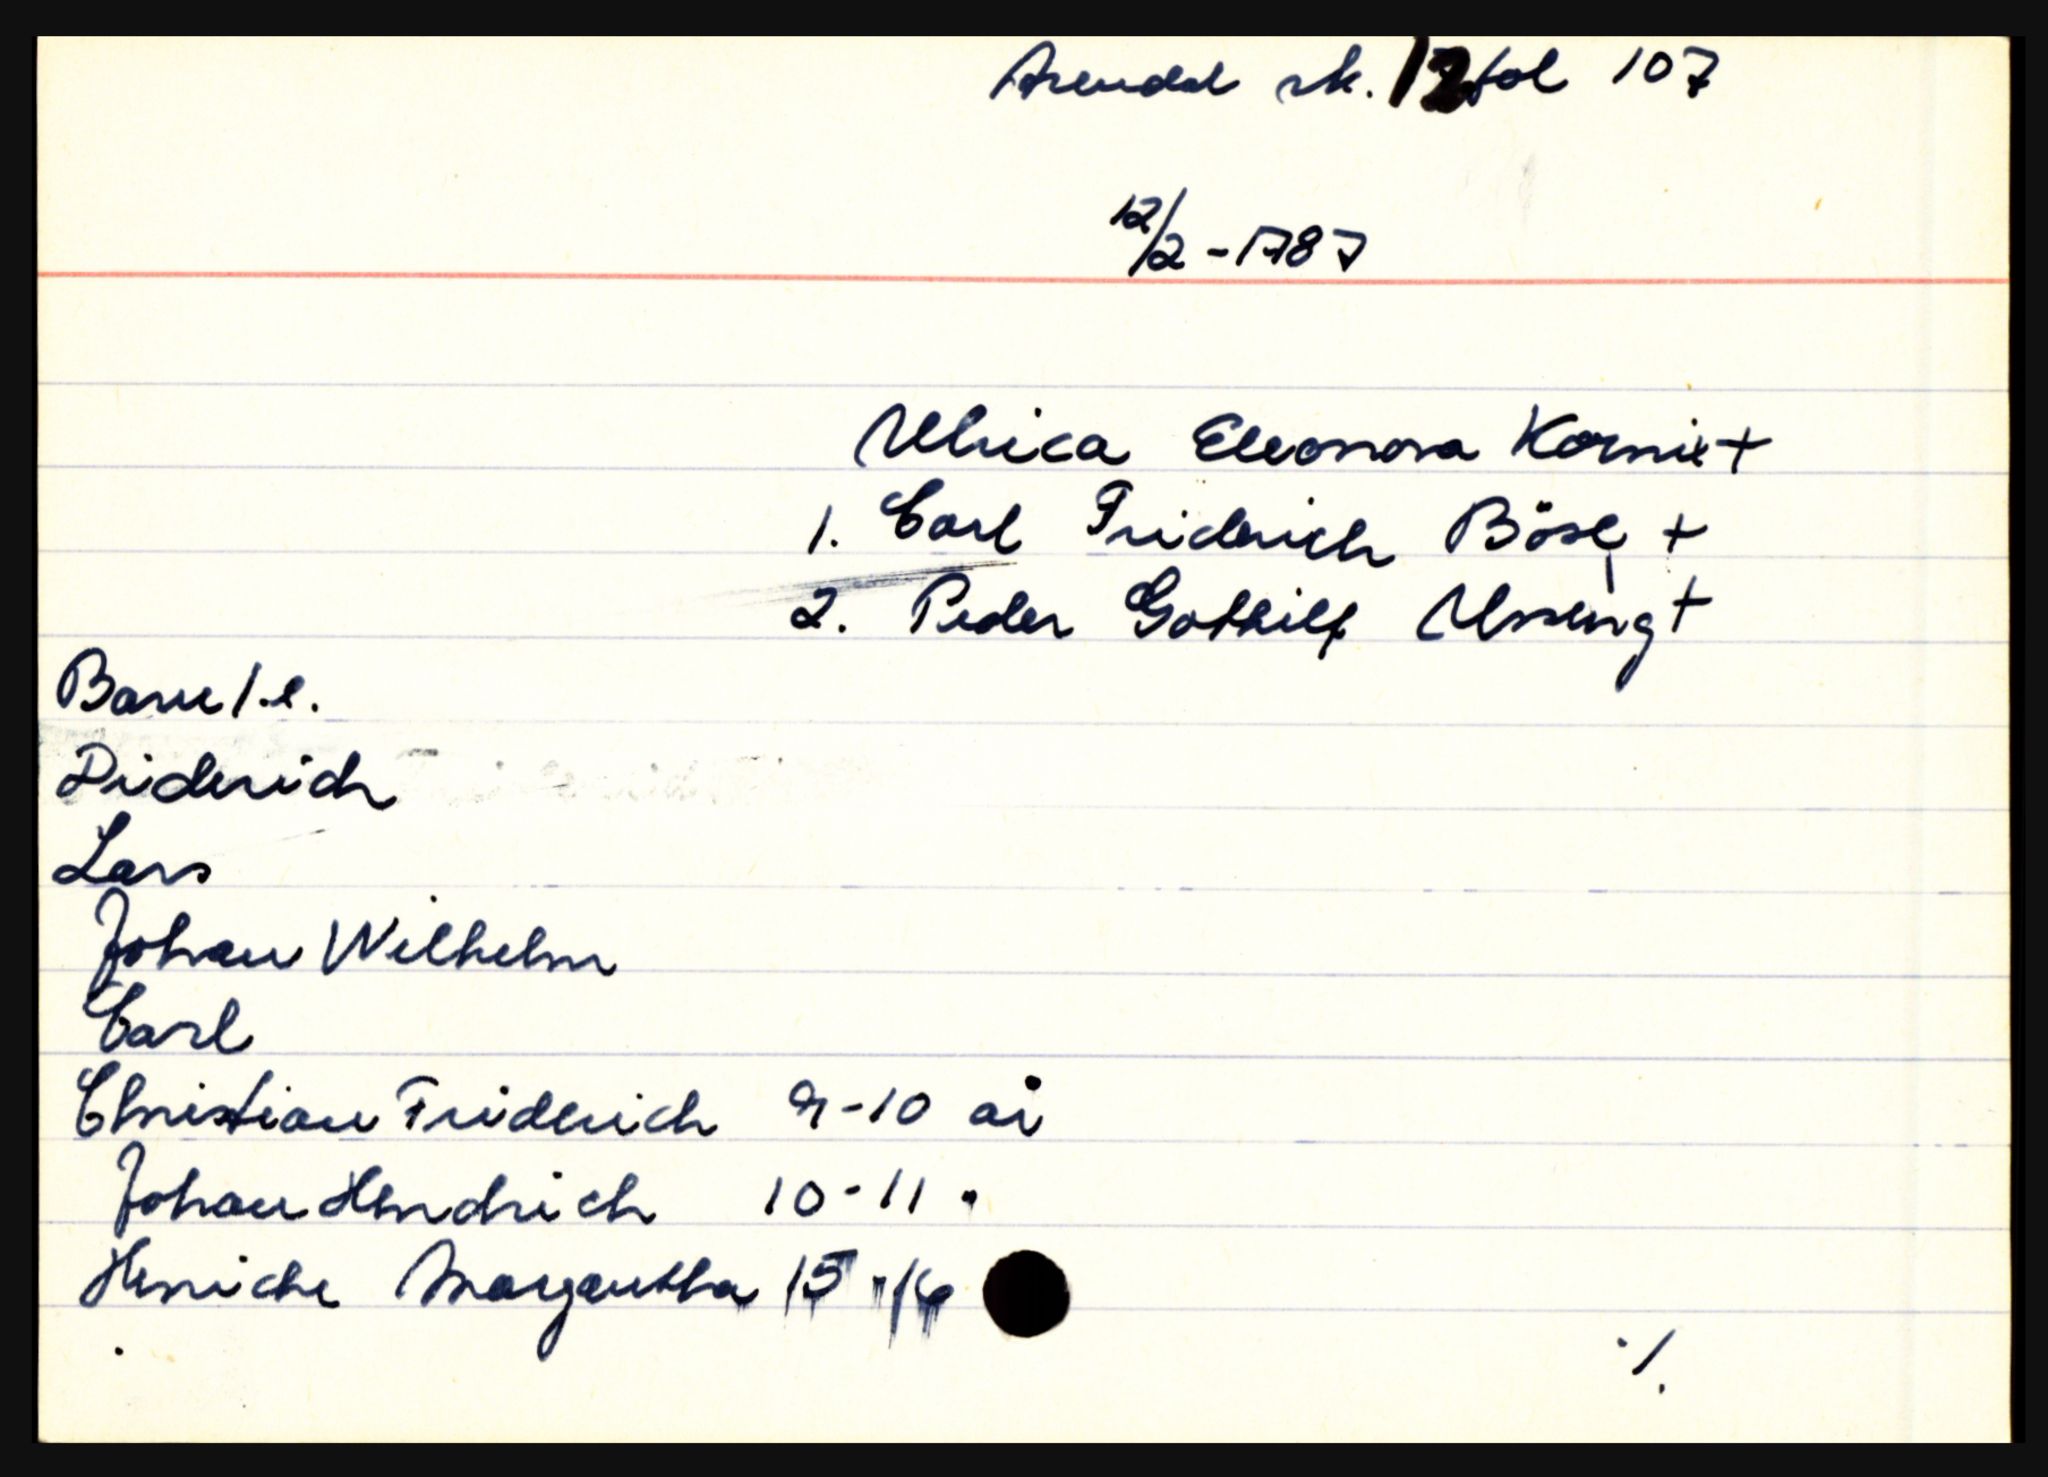 Arendal sk. 12 fol 107
12/2 - 1787
Ulrica Eleonora Kornix +
1. Carl Friderich Böse +
2. Peder Gothilf Ussing +
Barn 1. e.
Diderich
Lars
Johan Wilhelm
Carl
Christian Friderich 9-10 år
Johan Hendrich 10-11 "
Henriche Margaretha 15 - 16
./.